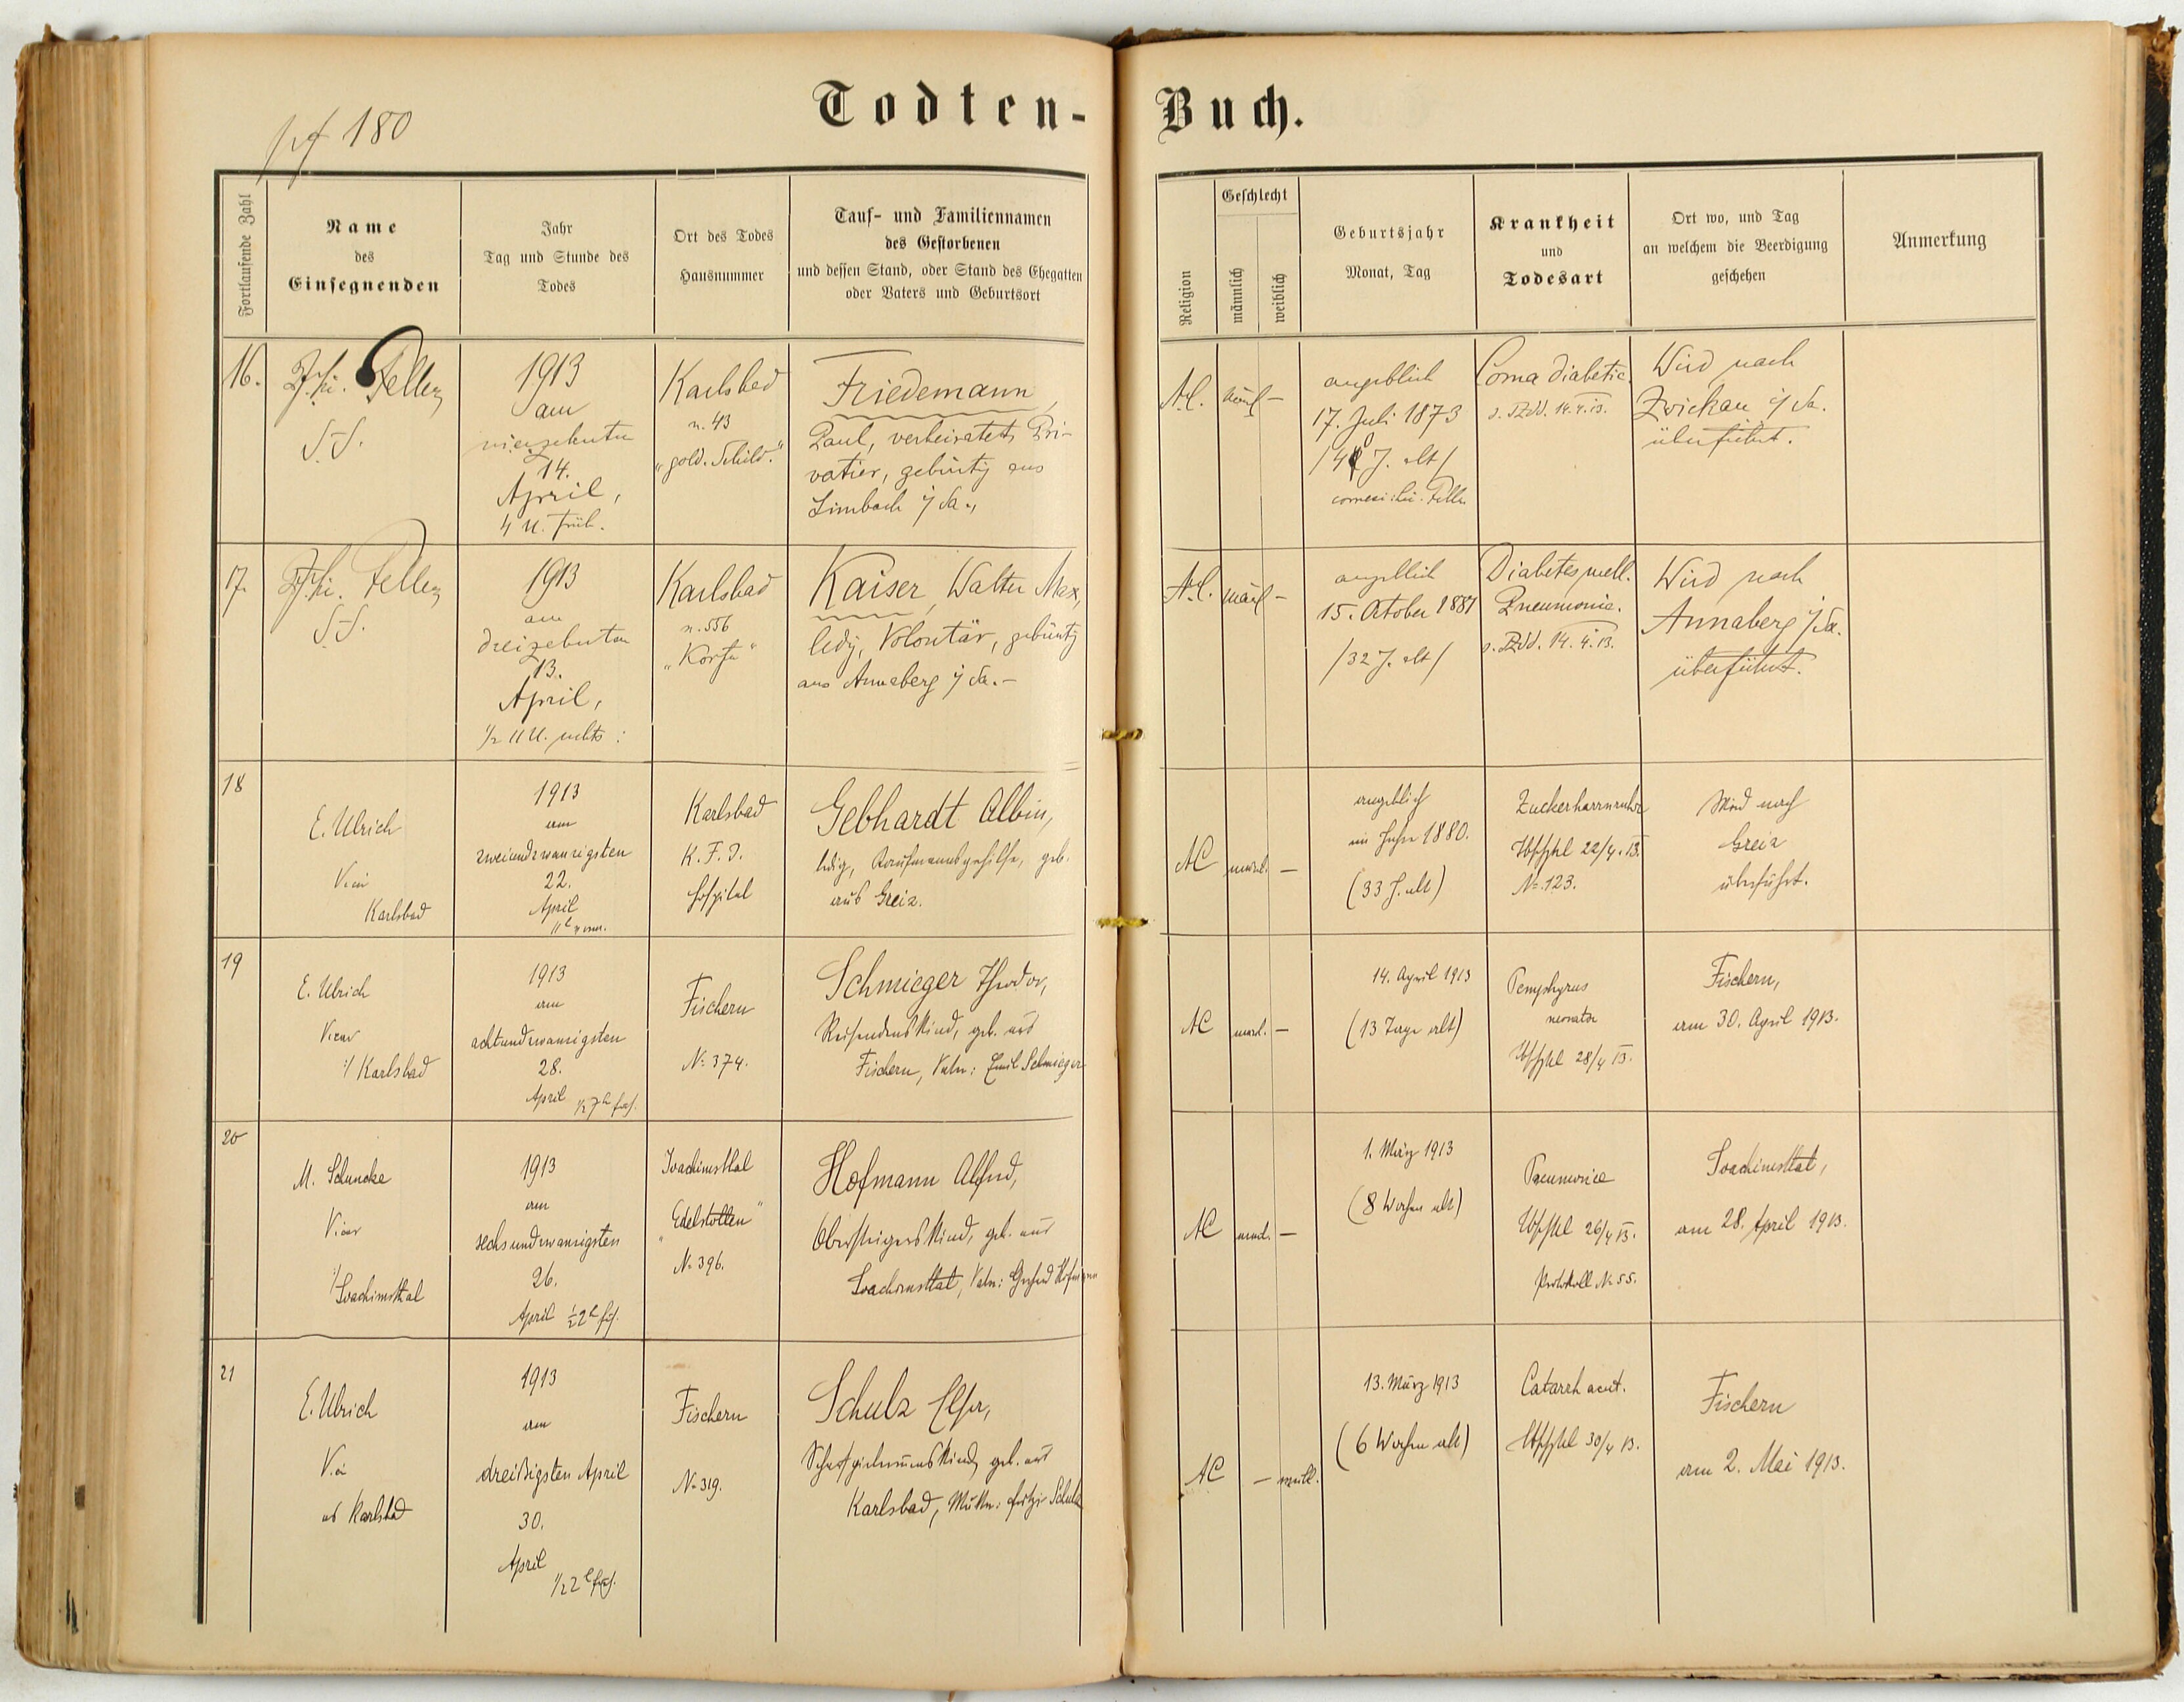 pg 180
Todten-Buch.
Fortlaufende Zahl
Name
des
Einsegnenden
Jahr
Tag und Stunde des
Todes
Ort des Todes
Hausnummer
Tauf- und Familiennamen
des Gestorbenen
und dessen Stand, oder Stand des Ehegatten
oder Vaters und Geburtsort
Religion
Geschlecht
männlich
weiblich
Geburtsjahr
Monat, Tag
Krankheit
und
Todesart
Ort wo, und Tag
an welchem die Beerdigung
geschehen
Anmerkung
16.
Feller
1913
am
vierzehnten
14.
April,
4 U. früh.
Karlsbad
n. 43
"gold. Schild."
Friedemann,
Paul, verheiratet, Pri-
vatier, gebürtig aus
Limbach i/Sa.,
A.C.
männl –
angeblich
17. Juli 1873
/40 J. alt/
Feller
Coma diabetic.
14.4.13.
Wird nach
Zwickau i/Sa.
überführt.
17.
Feller
1913
am
dreizehnten
13.
April,
1/2 11 U. nachts:
Karlsbad
n. 556
"Korfu"
Kaiser, Walter Max,
ledig, Volontär, gebürtig
aus Annaberg i/Sa.–
A.C.
männl –
angeblich
15. October 1881
/32 J. alt/
Diabetes mell.
Pneumonie.
14.4.13.
Wird nach
Annaberg i/Sa.
überführt.
18
E. Ulrich
Karlsbad
1913
am
zweiundzwanzigsten
22.
April
Karlsbad
K. F. J.
Hospital
Gebhardt Albin,
ledig, Kaufmannsgehilfe, geb.
aus Greiz.
AC
männl. –
angeblich
im Jahre 1880.
(33 J. alt)
Zuckerharnruhr
22/4.13.
No. 123.
Wird nach
Greiz
überführt.
19
E. Ulrich
Vicar
i/ Karlsbad
1913
am
achtundzwanzigsten
28.
April 1/2 7h früh.
Fischern
No. 374.
Schmieger Theodor,
Reisendenskind, geb. aus
Fischern, Vater: Emil Schmieger
AC
männl. –
14. April 1913
(13 Tage alt)
Pemphygus
neonator
28/4 13.
Fischern,
am 30. April 1913.
20
M. Schuncke
Vicar
i/ Joachimsthal
1913
am
sechsundzwanzigsten
26.
April 1/2 2h früh.
Joachimsthal
"Edelstollen"
No. 396.
Hofmann Alfred,
Obersteigerskind, geb. aus
Joachimsthal, Vater: Hofmann
AC
männl. –
1. März 1913
(8 Wochen alt)
Pneumonie
26/4 13.
Protokoll No. 55.
Joachimsthal,
am 28. April 1913.
21
E. Ulrich
Karlsbad
1913
am
dreißigsten April
30.
April
1/2 2h früh.
Fischern
No. 319.
Schulz Elsa,
Karlsbad, Mutter: Schulz
AC
– weibl.
13. März 1913
(6 Wochen alt)
Catarrh acut.
30/4 13.
Fischern
am 2. Mai 1913.